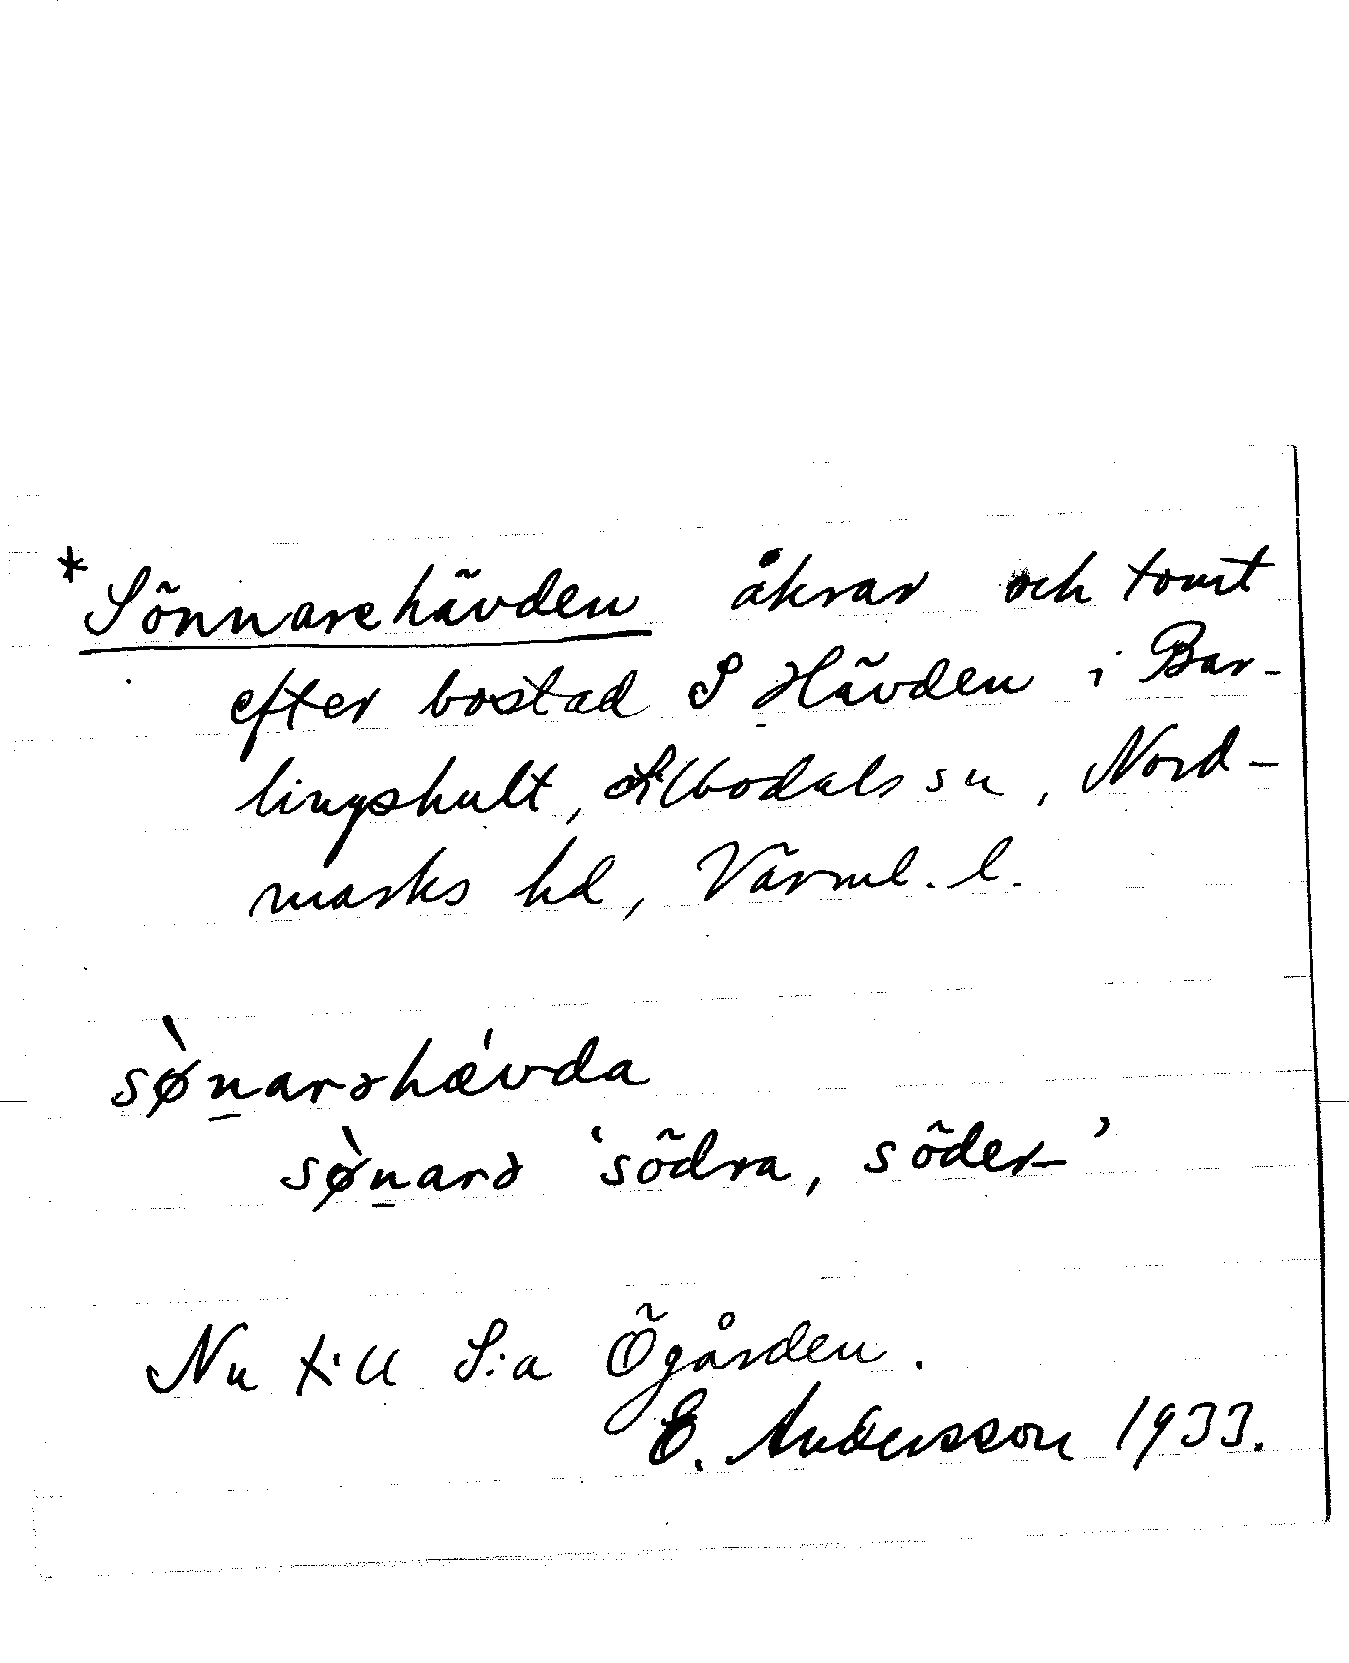 *Sönnarehävden åkrar och tomt
efter bostad S Hävden i Bar-
lingshult, Silbodals sn, Nord-
marks hd, Värml. l.
sø̀n̲arəhǽvda
sø̀n̲arə ‘södra, söder-’
Nu till S:a Ögården.
E. Andersson 1933.